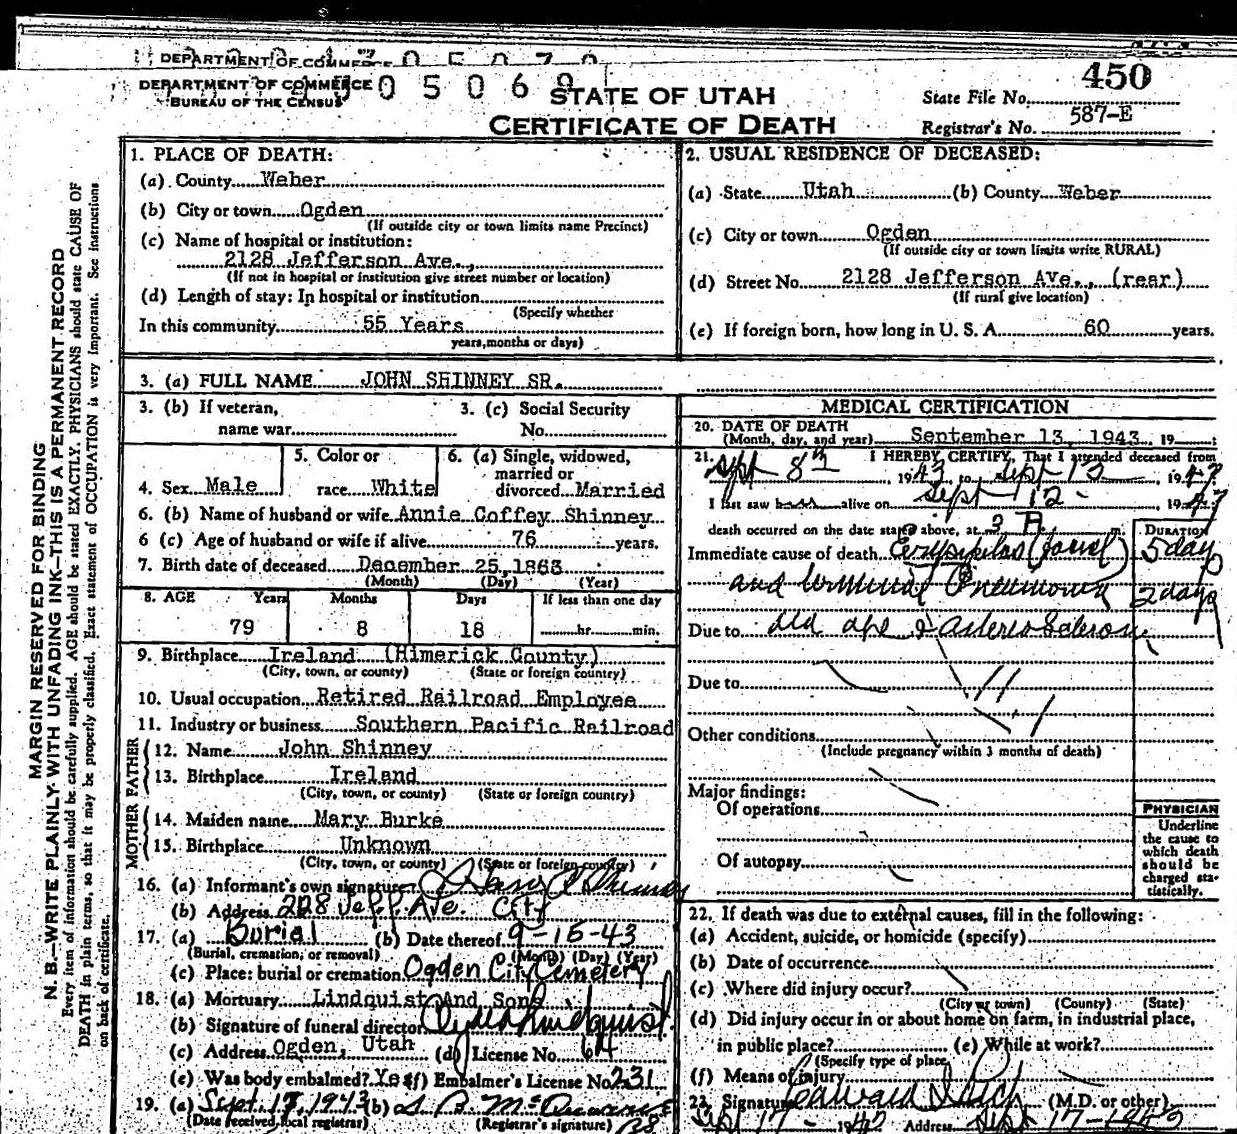 DEPARTMENT OF COMMERCE 0 5 0 7 0
DEPARTMENT OF COMMERCE 0 5 0 6 9
BUREAU OF THE CENSUS
STATE OF UTAH
CERTIFICATE OF DEATH
State File No. 450
Registrar's No. 587-E
MARGIN RESERVED FOR BINDING
N. B.—WRITE PLAINLY WITH UNFADING INK—THIS IS A PERMANENT RECORD
Every item of information should be carefully supplied. AGE should be stated EXACTLY. PHYSICIANS should state CAUSE OF
DEATH in plain terms, so that it may be properly classified. Exact statement of OCCUPATION is very important. See instructions
on back of certificate.
1. PLACE OF DEATH:
(a) County Weber
(b) City or town Ogden
(If outside city or town limits name Precinct)
(c) Name of hospital or institution:
2128 Jefferson Ave.,
(If not in hospital or institution give street number or location)
(d) Length of stay: In hospital or institution
(Specify whether
In this community 55 Years
years, months or days)
2. USUAL RESIDENCE OF DECEASED:
(a) State Utah (b) County Weber
(c) City or town Ogden
(If outside city or town limits write RURAL)
(d) Street No. 2128 Jefferson Ave., (rear)
(If rural give location)
(e) If foreign born, how long in U. S. A. 60 years.
3. (a) FULL NAME JOHN SHINNEY SR.
3. (b) If veteran, 3. (c) Social Security
name war No.
5. Color or 6. (a) Single, widowed,
married or
4. Sex Male race White divorced Married
6. (b) Name of husband or wife Annie Coffey Shinney
6 (c) Age of husband or wife if alive 76 years.
7. Birth date of deceased December 25, 1863
(Month) (Day) (Year)
8. AGE Years Months Days If less than one day
79 8 18 hr. min.
9. Birthplace Ireland (Himerick County)
(City, town, or county) (State or foreign country)
10. Usual occupation Retired Railroad Employee
11. Industry or business Southern Pacific Railroad
FATHER
12. Name John Shinney
13. Birthplace Ireland
(City, town, or county) (State or foreign country)
MOTHER
14. Maiden name Mary Burke
15. Birthplace Unknown
(City, town, or county) (State or foreign country)
16. (a) Informant's own signature Shinney
(b) Address 2128 Jeff. Ave. City
17. (a) Burial (b) Date thereof 9-16-43
(Burial, cremation, or removal) (Month) (Day) (Year)
(c) Place: burial or cremation Ogden City Cemetery
18. (a) Mortuary Lindquist And Sons
(b) Signature of funeral director Lindquist
(c) Address Ogden, Utah (d) License No. 64
(e) Was body embalmed? Yes (f) Embalmer's License No. 231
19. (a) Sept. 17, 1943 (b)
(Date received, local registrar) (Registrar's signature)
MEDICAL CERTIFICATION
20. DATE OF DEATH
(Month, day, and year) September 13, 1943, 19
21. I HEREBY CERTIFY, That I attended deceased from
Sept 8th, 1943, to Sept 13, 1943
I last saw h alive on Sept 12 - 1943
death occurred on the date stated above, at 3 P. m.
DURATION
Immediate cause of death Erysipelas (facial) 5 days
and terminal Pneumonia 2 days
Due to old age & arteriosclerosis
Due to
Other conditions
(Include pregnancy within 3 months of death)
Major findings:
Of operations
Of autopsy
PHYSICIAN
Underline
the cause to
which death
should be
charged sta-
tistically.
22. If death was due to external causes, fill in the following:
(a) Accident, suicide, or homicide (specify)
(b) Date of occurrence
(c) Where did injury occur?
(City or town) (County) (State)
(d) Did injury occur in or about home on farm, in industrial place,
in public place? (e) While at work?
(Specify type of place)
(f) Means of injury
23. Signature Edward (M.D. or other)
Sept 17 - 1943 Address Sept 17-1943